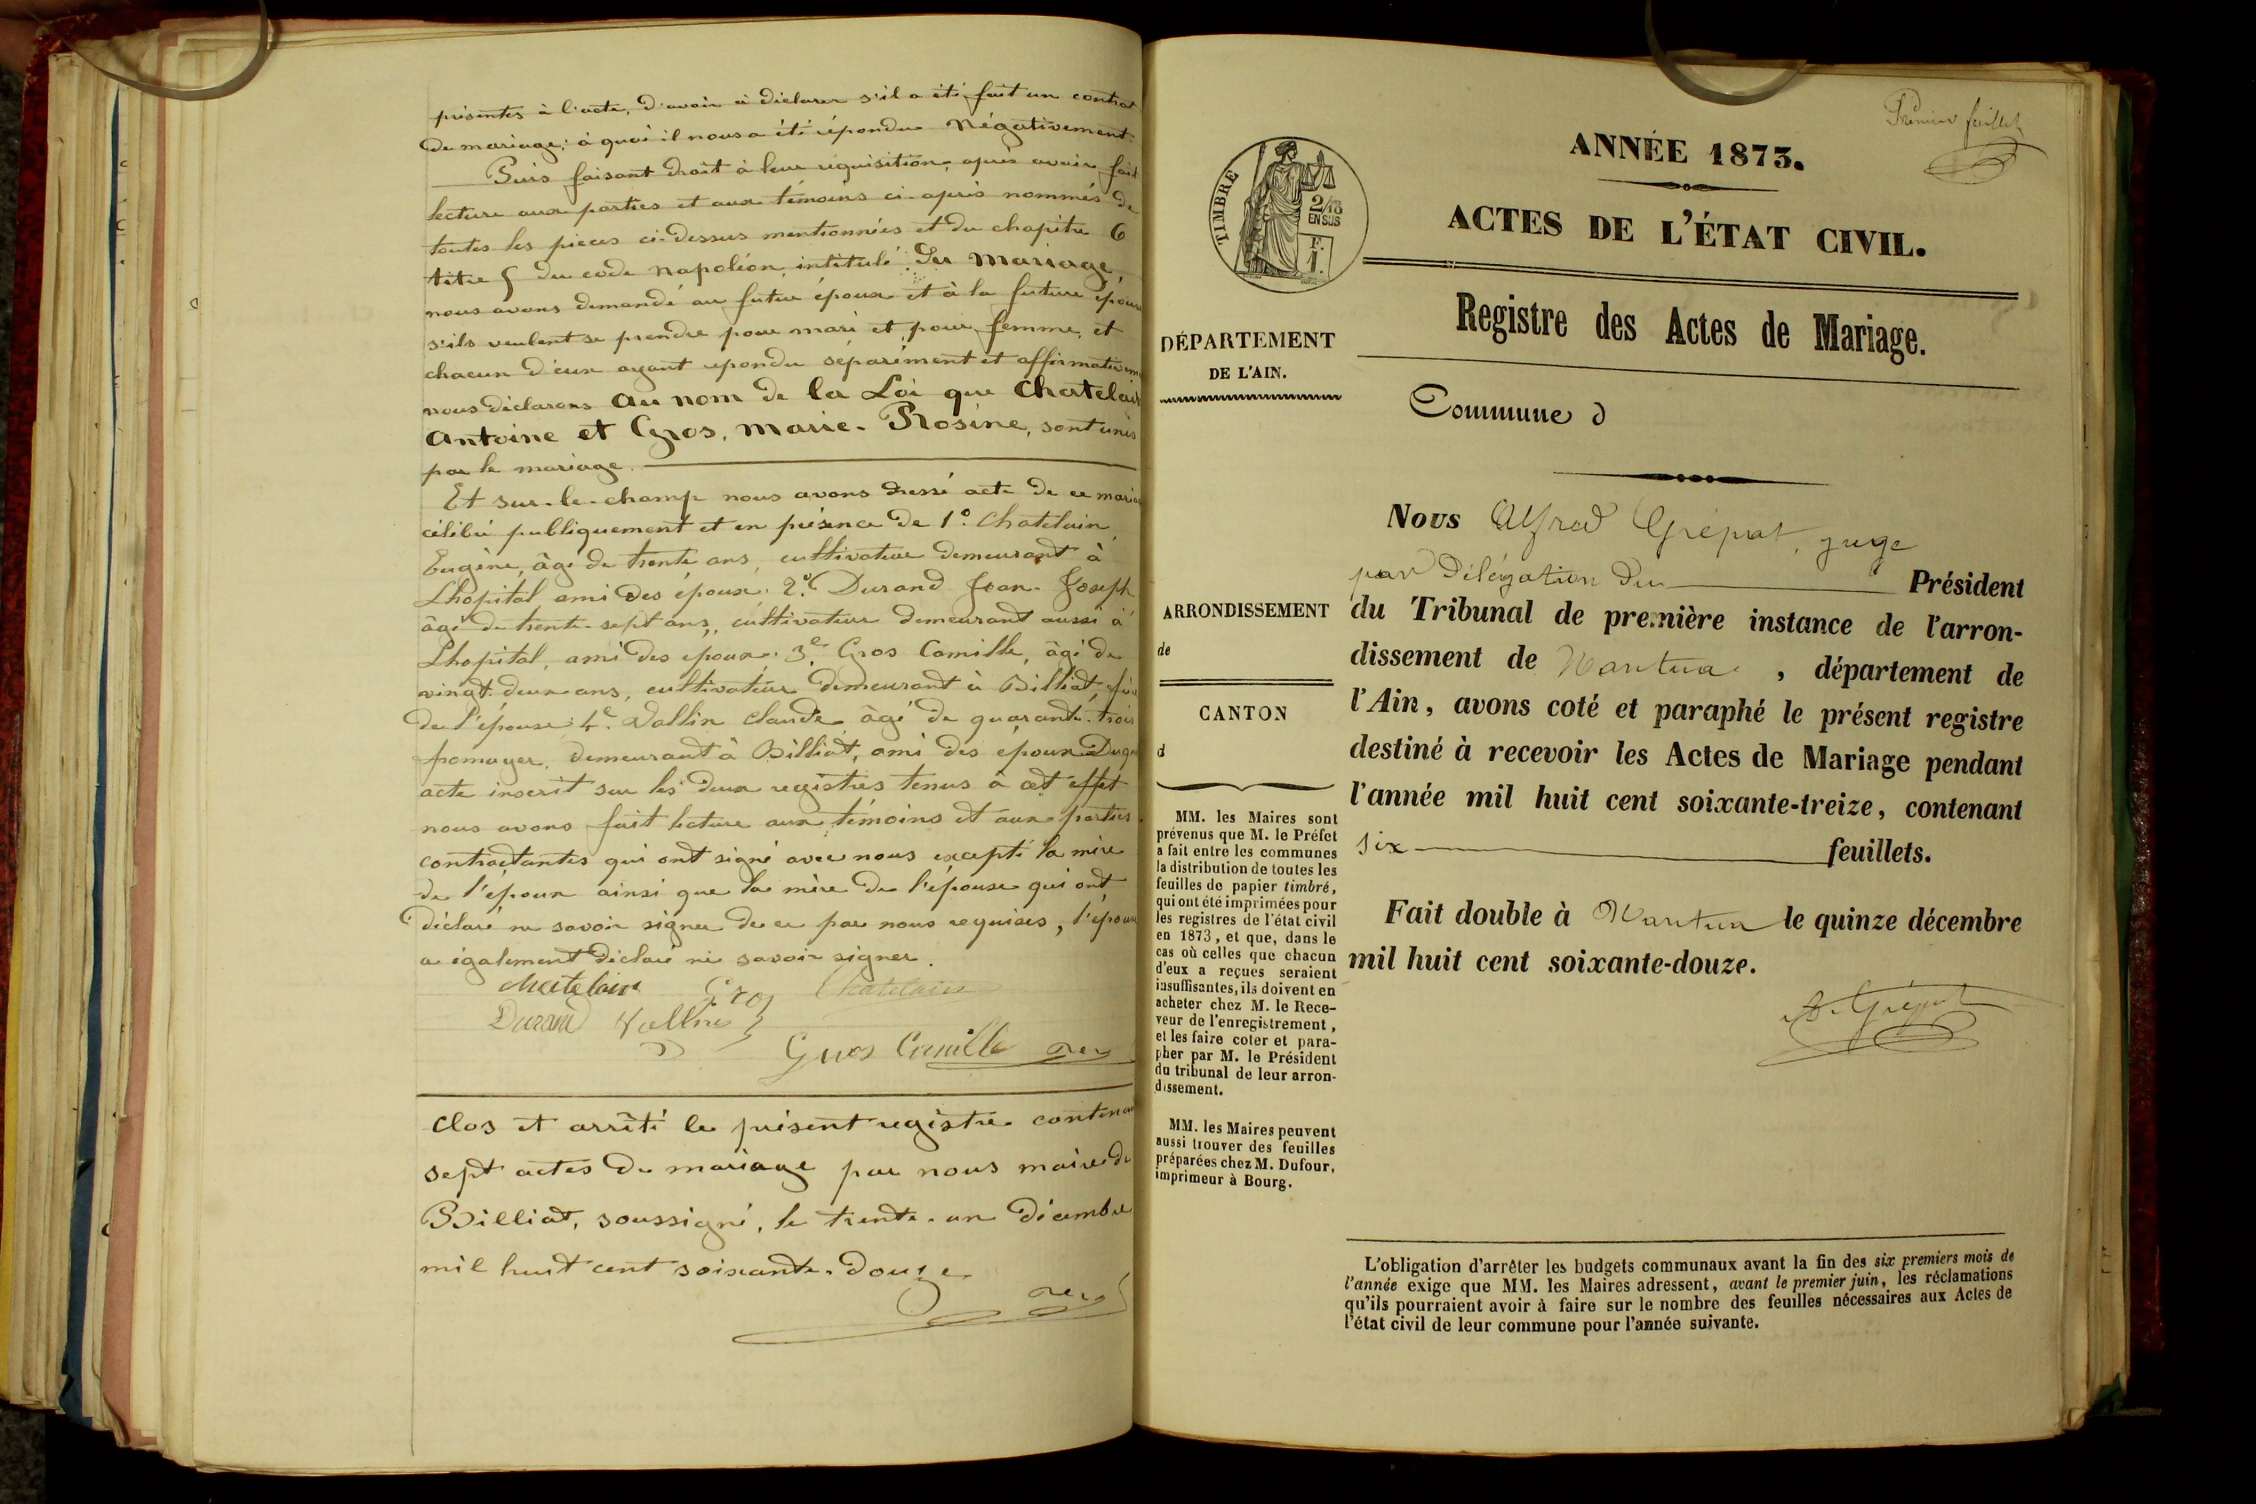 présentes à l'acte, d'avoir à déclarer s'il a été fait un contrat
de mariage; à quoi il nous a été répondu Négativement.
Puis faisant droit à leur réquisition, après avoir fait
lecture aux parties et aux témoins ci-après nommés de
toutes les pièces ci-dessus mentionnées et du chapitre 6
titre 5 du code Napoléon, intitulé Du Mariage,
nous avons demandé au futur époux et à la future épouse
s'ils veulent se prendre pour mari et pour femme, et
chacun d'eux ayant répondu séparément et affirmativem
nous déclarons au nom de la Loi que Chatelain
Antoine et Gros, Marie-Rosine, sont unis
par le mariage.
Et sur-le-champ nous avons dressé acte de ce mariage
célébré publiquement et en présence de 1° Chatelain
Eugène, âgé de trente ans, cultivateur demeurant à
Lhopital ami des époux; 2° Durand Jean-Joseph
âgé de trente-sept ans, cultivateur demeurant aussi à
Lhopital, ami des époux; 3e Gros Camille, âgé de
vingt-deux ans, cultivateur demeurant à Billiat,
de l'épouse; 4e Vallin Claude âgé de quarante-trois
demeurant à Billiat, ami des époux Duquel
acte inscrit sur les deux registres tenus à cet effet
nous avons fait lecture aux témoins et aux parties
contractantes qui ont signé avec nous excepté la mère
de l'époux ainsi que la mère de l'épouse qui ont
déclaré ne savoir signer de ce par nous requises, l'épouse
a également déclaré ne savoir signer.
Chatelain Gros Chatelain
Durand Vallin
Gros Camille
Clos et arrêté le présent registre contenant
sept actes de mariage par nous maire de
Billiat, soussigné, le trente-un Décembre
mil huit cent soixante-douze
Premier feuillet
ANNÉE 1873.
ACTES DE L'ÉTAT CIVIL.
TIMBRE
2/10
EN SUS
F.
1.
Registre des Actes de Mariage.
DÉPARTEMENT
DE L'AIN.
Commune d
Nous Alfred Grépat, juge
par délégation du Président
du Tribunal de première instance de l'arron-
dissement de Nantua, département de
l'Ain, avons coté et paraphé le présent registre
destiné à recevoir les Actes de Mariage pendant
l'année mil huit cent soixante-treize, contenant
six feuillets.
Fait double à Nantua le quinze décembre
mil huit cent soixante-douze.
A. Grépat
ARRONDISSEMENT
de
CANTON
d
MM. les Maires sont
prévenus que M. le Préfet
a fait entre les communes
la distribution de toutes les
feuilles de papier timbré,
qui ont été imprimées pour
les registres de l'état civil
en 1873, et que, dans le
cas où celles que chacun
d'eux a reçues seraient
insuffisantes, ils doivent en
acheter chez M. le Rece-
veur de l'enregistrement,
et les faire coter et para-
pher par M. le Président
du tribunal de leur arron-
dissement.
MM. les Maires peuvent
aussi trouver des feuilles
préparées chez M. Dufour,
imprimeur à Bourg.
L'obligation d'arrêter les budgets communaux avant la fin des six premiers mois de
l'année exige que MM. les Maires adressent, avant le premier juin, les réclamations
qu'ils pourraient avoir à faire sur le nombre des feuilles nécessaires aux Actes de
l'état civil de leur commune pour l'année suivante.